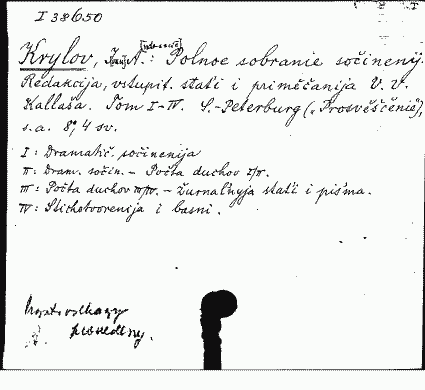 I 38650
Krylov, Ivan A. [ndreevič]: Polnoe sobranie sočinenij.
Redakcija, vstupit. staťi i priměčanija V. V.
Kallaša. Tom I-IV. S.-Peterburg („Prosvěščenie“),
s.a. 8°, 4 sv.
I: Dramatič. sočinenija
II: Dram. sočin. - Počta duchov I/II.
III: Počta duchov III/IV. - Žurnaľnyja staťi i piśma.
IV: Stichotvorenija i basni.